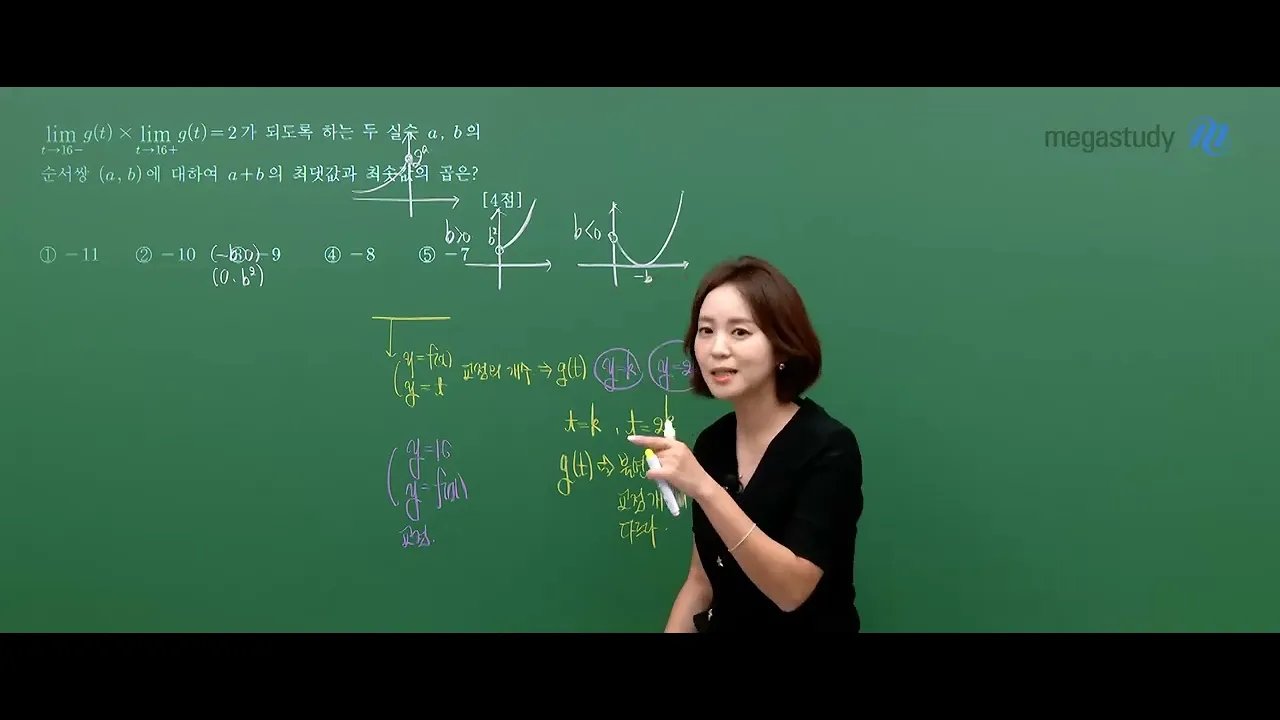 lim g(t) × lim g(t) = 2 가 되도록 하는 두 실수 a, b의
t→16− t→16+
megastudy
순서쌍 (a, b)에 대하여 a+b의 최댓값과 최솟값의 곱은?
[4점]
① −11 ② −10 −9 ④ −8 ⑤ −7
(−b, 0)
(0, b²)
b>0
b²
b<0
−b
y=f(x)
y=t
교점의 개수 ⇒ g(t)
y=k
y=2
t=k , t=2
y=16
y=f(x)
교점.
g(t) ⇒
교점 개
다르다.